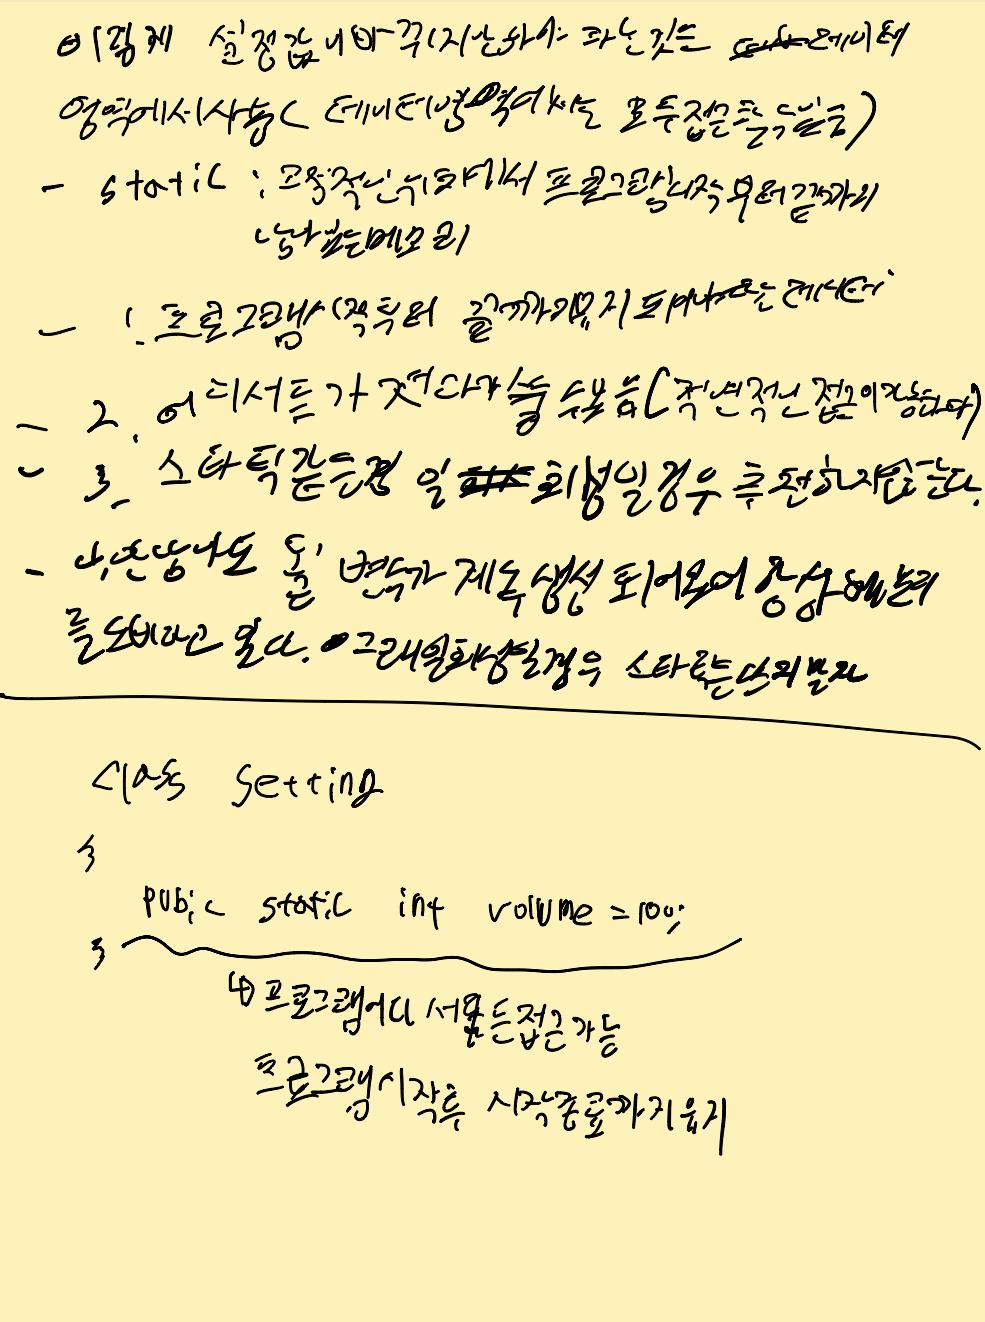 이렇게 설정값이 바뀌지 않아야 하는 것은 데이터
영역에서 사용 ( 데이터 영역에서는 모두 접근할 수 있음 )
- static : 고정적인 위치에서 프로그램 시작부터 끝까지
남아있는 메모리
- 1. 프로그램 시작부터 끝까지 유지 되어야 하는 데이터
- 2. 어디서든 가져다가 쓸 수 있음 ( 직접적인 접근이 가능하다)
- 3. 스타틱 같은건 일회성일 경우 추천하지 않는다.
- 사용 안 하더라도 변수가 계속 생성 되어있어 항상 메모리
를 소비하고 있다. 그래 일회성일 경우 스타틱은 피하자
class setting
{
pubic static int volume = 100;
}
↳ 프로그램 어디서든 접근 가능
프로그램 시작 후 시작 종료까지 유지